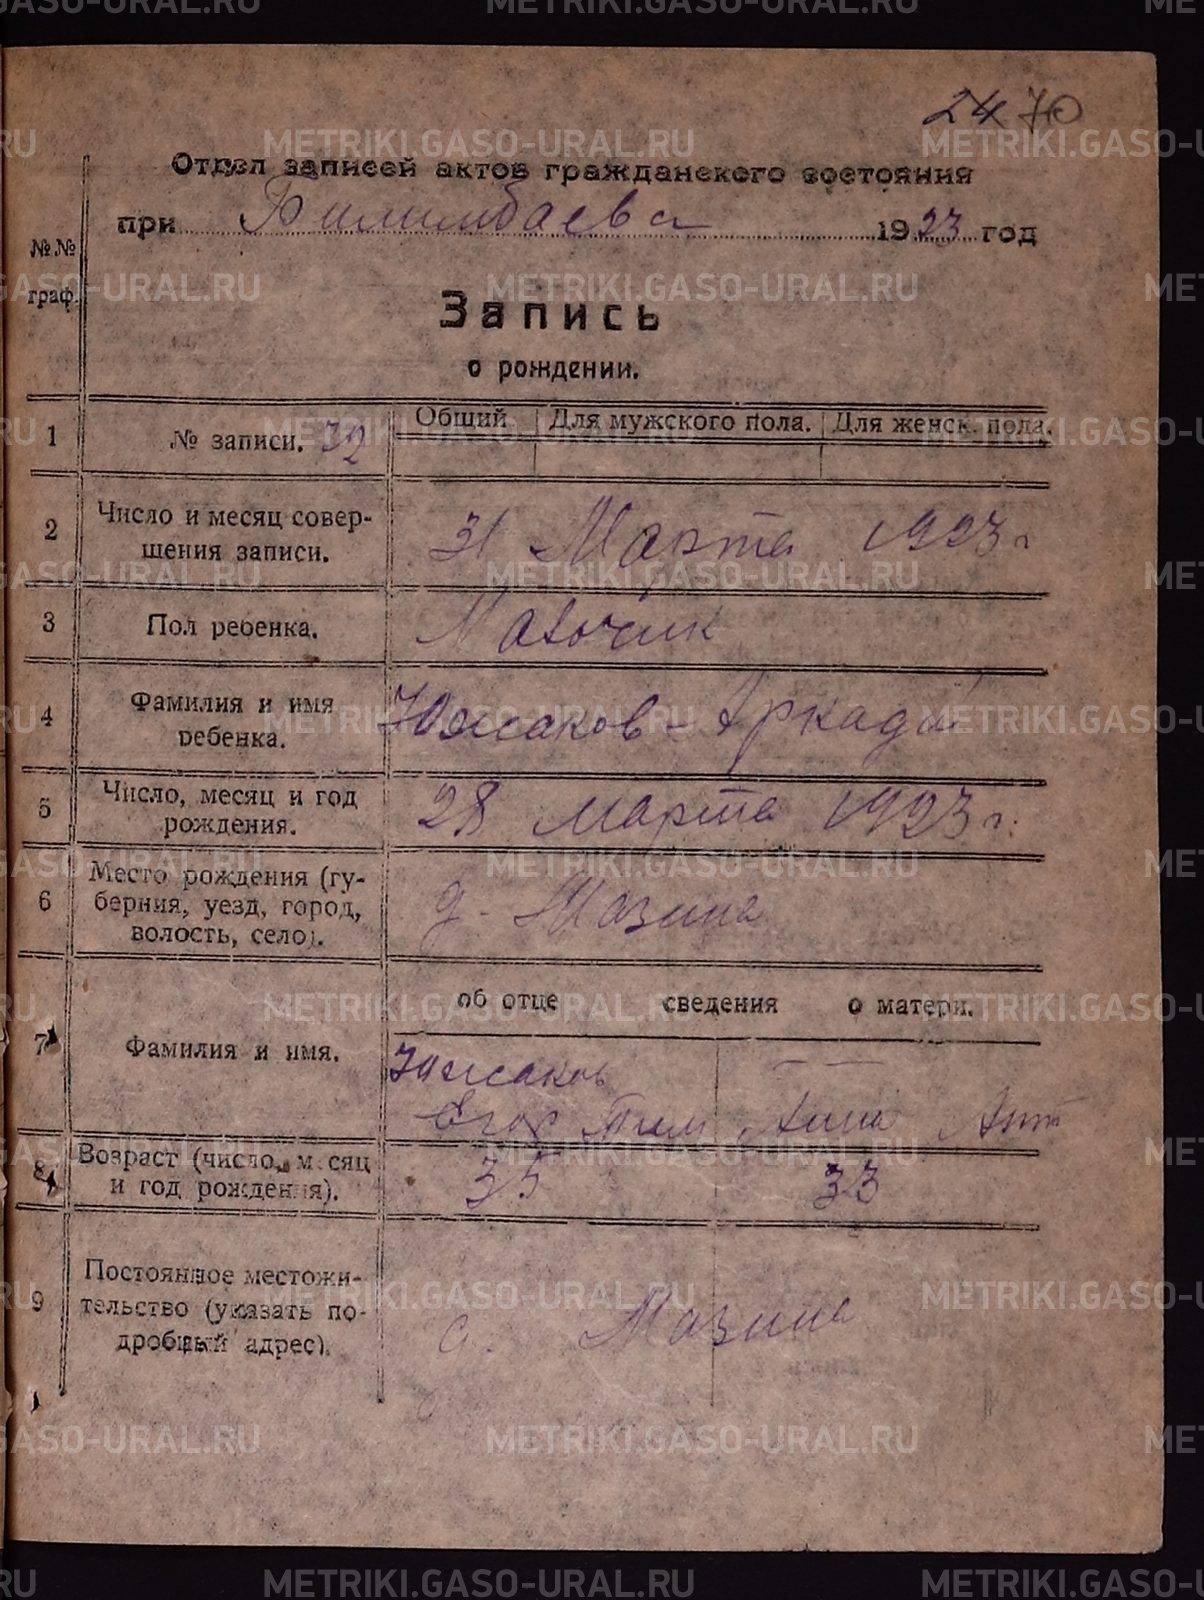 24 70
Отдел записей актов гражданского состояния
при Билимбаева 1923 год
№№
граф.
Запись
о рождении.
1 № записи. 32 Общий Для мужского пола. Для женск. пола.
2 Число и месяц совер-
шения записи.
31 Марта 1923 г
3 Пол ребенка. Мальчик
4 Фамилия и имя
ребенка.
Южаков - Аркадий
5 Число, месяц и год
рождения.
28 марта 1923 г.
6 Место рождения (гу-
берния, уезд, город,
волость, село).
д. Мазина
об отце сведения о матери.
7 Фамилия и имя.
Южаков
Егор Тим Анна Ант
8 Возраст (число, месяц
и год рождения).
35 33
9 Постоянное местожи-
тельство (указать по-
дробный адрес).
д. Мазина
METRIKI.GASO-URAL.RU